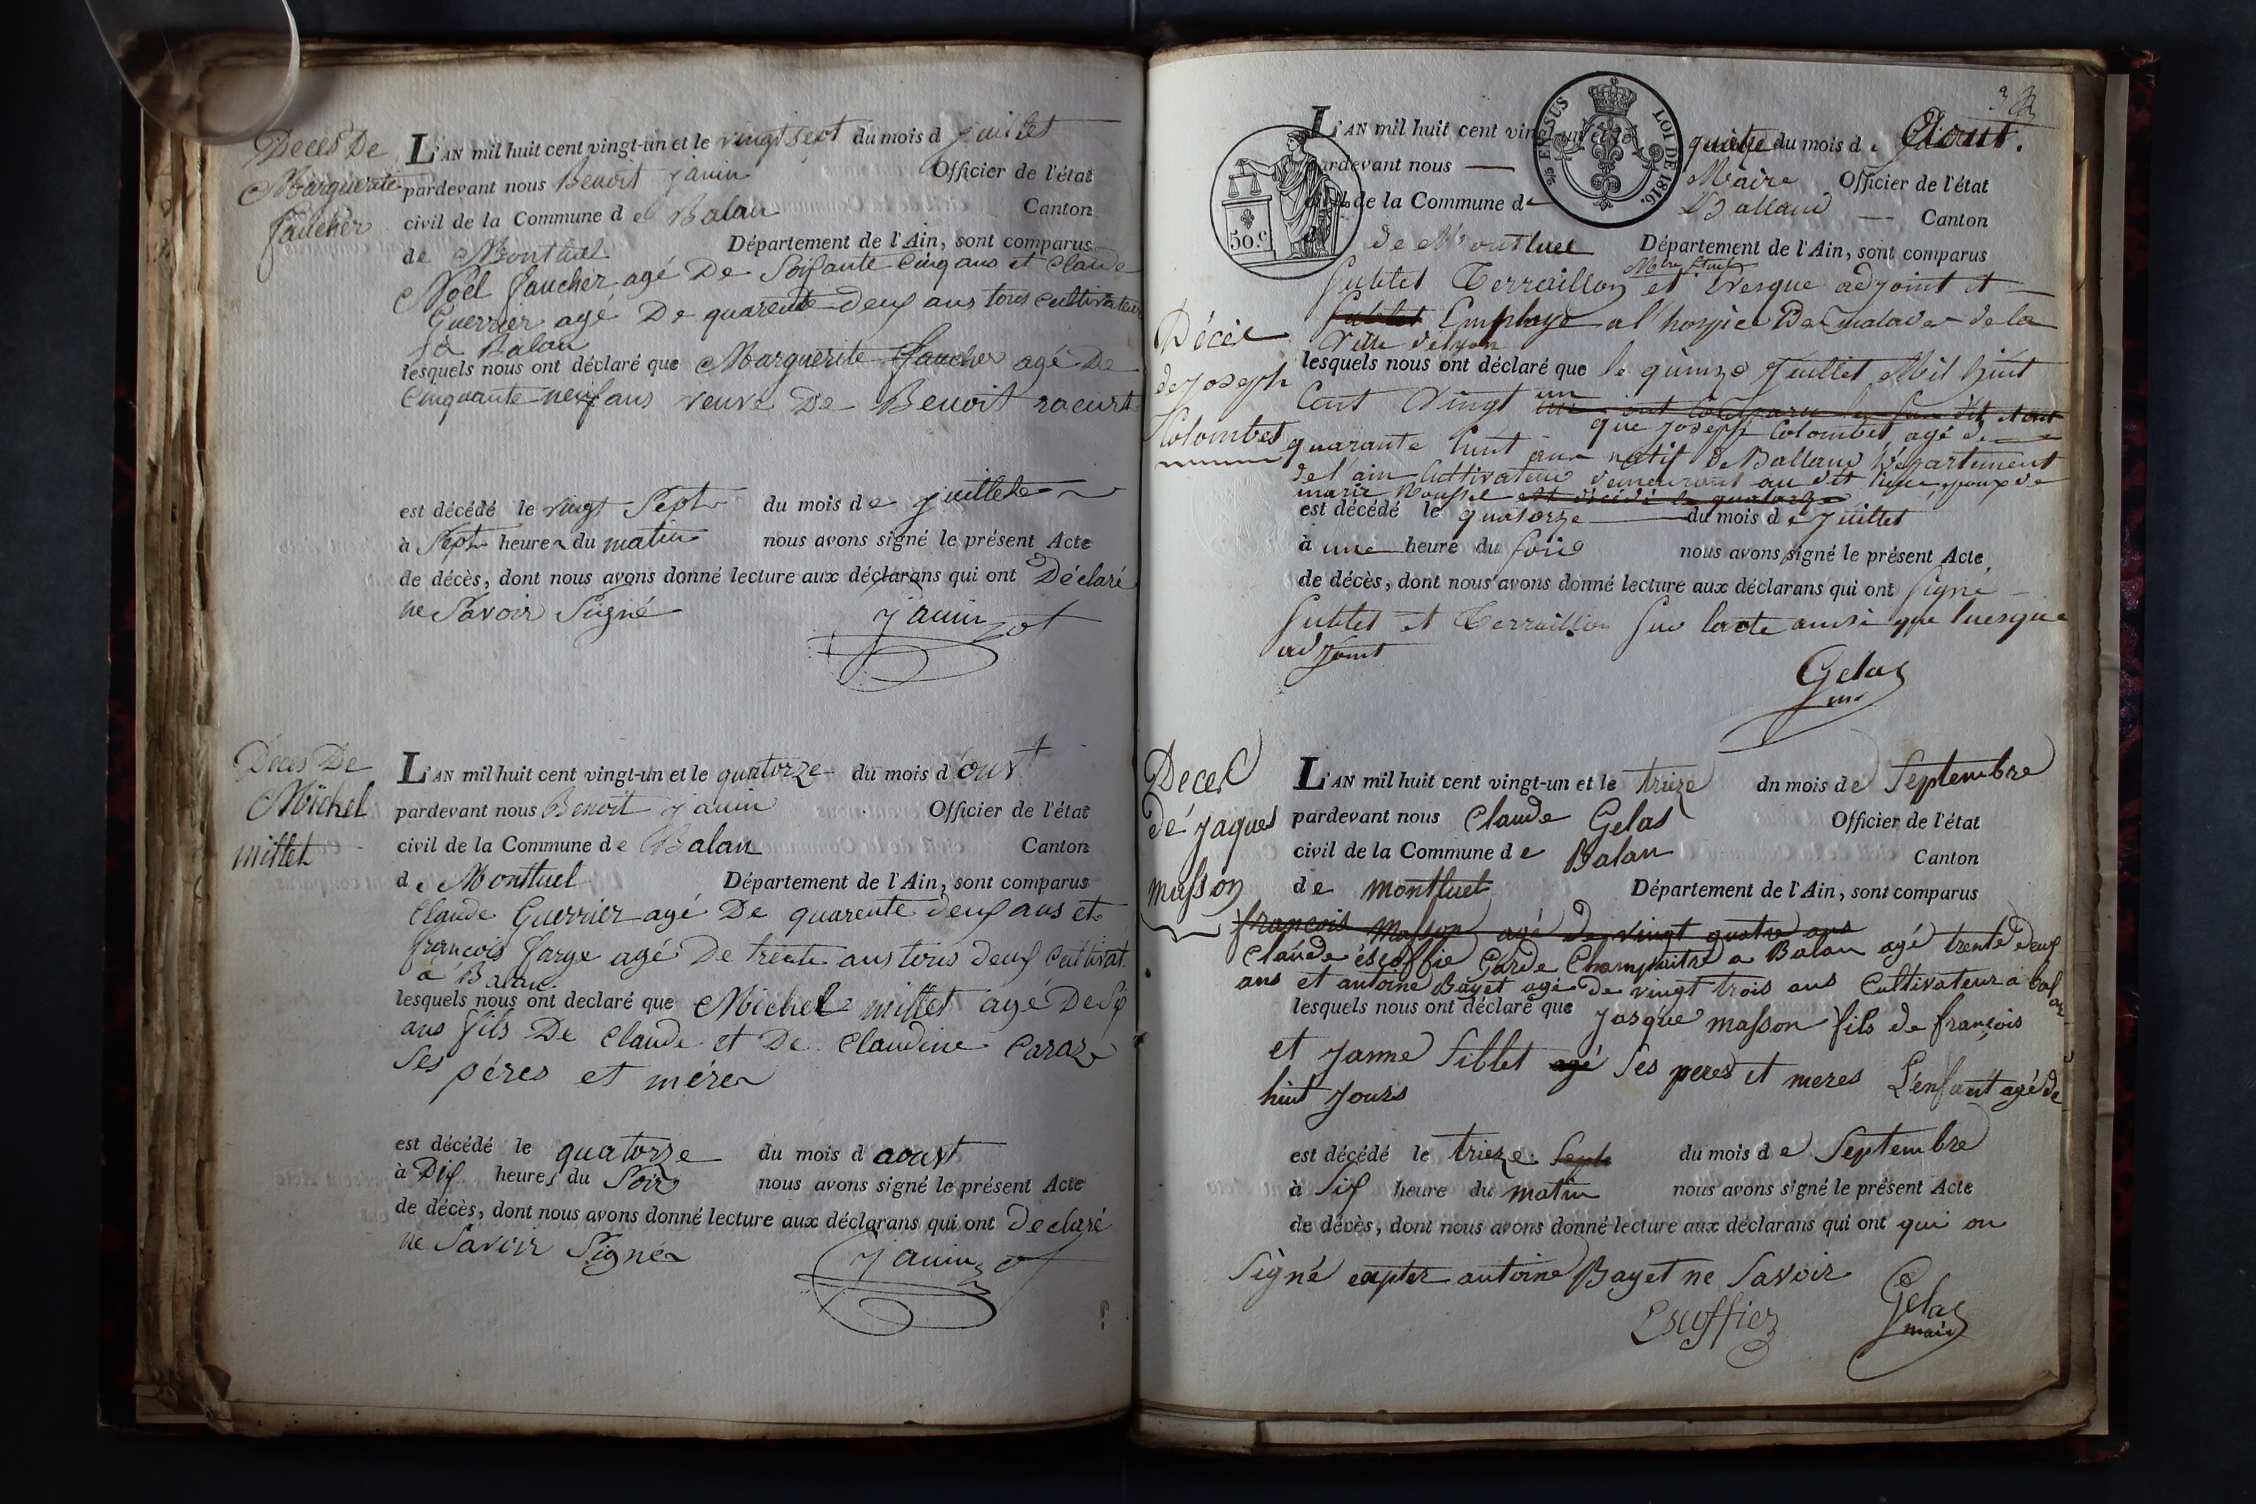 Deces De
Marguerite
faucher
L'AN mil huit cent vingt-un et le vingt sept du mois d juillet
pardevant nous Benoit janin Officier de l'état
civil de la Commune de Balan Canton
de Montluel Département de l'Ain, sont comparus
Noël faucher agé De Soisante Cinq ans et Claude
Guerrier agé De quarente deux ans tous cultivateur
à Balan
lesquels nous ont déclaré que Marguerite faucher agé De
Cinquante neuf ans veuve De Benoit
est décédé le vingt Sept du mois de juillet
à Sept heure du matin nous avons signé le présent Acte
de décès, dont nous avons donné lecture aux déclarans qui ont Déclaré
ne Savoir Signé janin
Deces De
Michel
millet
L'AN mil huit cent vingt-un et le quatorze du mois d'oust
pardevant nous Benoit janin Officier de l'état
civil de la Commune de Balan Canton
de Montluel Département de l'Ain, sont comparus
Claude Guerrier agé De quarente deux ans et
françois farge agé De trente ans tous deux Cultivat.
à Balan
lesquels nous ont declaré que Michel millet agé De Six
ans fils De Claude et De Claudine Caraze
Ses péres et mére
est décédé le quatorze du mois d aoust
à Dix heures du Soir nous avons signé le présent Acte
de décès, dont nous avons donné lecture aux déclarans qui ont Declaré
ne Savoir Signé janin
L'AN mil huit cent vingt-un et le quinze du mois de Aout.
EN SUS LOI DE 1816.
50.c
pardevant nous Maire Officier de l'état
civil de la Commune de Balland Canton
de Montluel Département de l'Ain, sont comparus
Sublet Terraillon et Luesque adjoint et
Sublet Employé a l'hospice De malade de la
Ville de lyon
Décèt
de joseph
Colombet
lesquels nous ont déclaré que le quinze Juillet Mil huit
Cent Vingt un
que joseph Colombet agé de
quarante huit ans natif de Balland Département
de l'ain Cultivateur demeurant au dit lieu, epoux de
marie Roussel est décédé le quatorze
est décédé le quatorze du mois de juillet
à une heure du soir nous avons signé le présent Acte
de décès, dont nous avons donné lecture aux déclarans qui ont signé
Sublet et Terraillon sur lacte ainsi que luesque
adjoint
Gelas
Deces
de jaques
masson
L'AN mil huit cent vingt-un et le trieze dn mois de Septembre
pardevant nous Claude Gelas Officier de l'état
civil de la Commune de Balan Canton
de montluel Département de l'Ain, sont comparus
françois masson agé de vingt quatre ans
Claude éscoffie Garde Champaitre a Balan agé trente deux
ans et antoine Bayet agé de vingt trois ans Cultivateur a balan
lesquels nous ont déclaré que jasque masson fils de françois
et janne Siblet agé Ses peres et meres L'enfant agé de
huit jours
est décédé le trieze Septe du mois de Septembre
à Six heure du matin nous avons signé le présent Acte
de décès, dont nous avons donné lecture aux déclarans qui ont qui on
Signé eapter antoine Bayet ne Savoir
Escoffier Gelas
maire